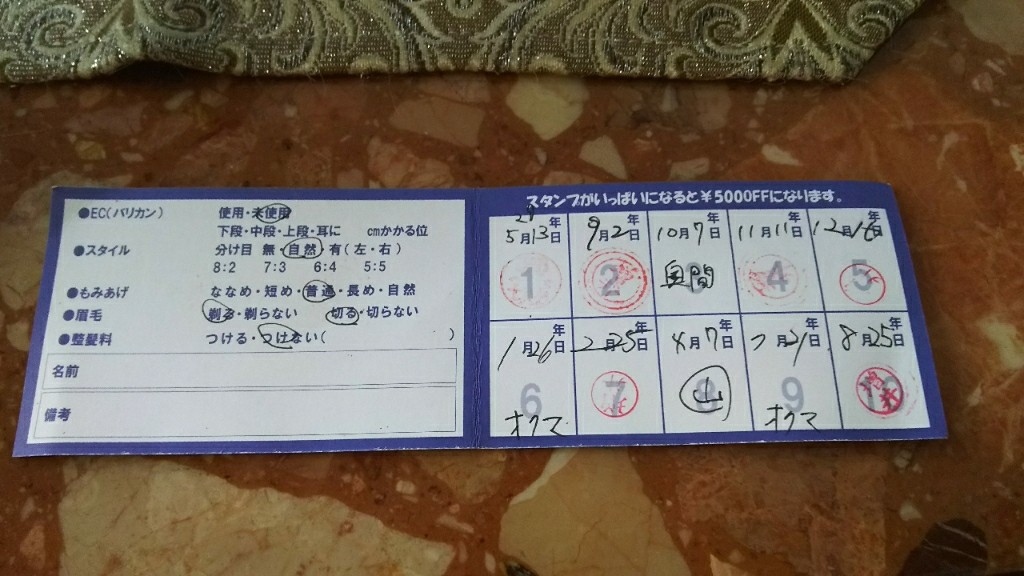 ●EC(バリカン) 使用・未使用
下段・中段・上段・耳に cmかかる位
●スタイル 分け目 無・自然・有(左・右)
8:2 7:3 6:4 5:5
●もみあげ ななめ・短め・普通・長め・自然
●眉毛 剃る・剃らない 切る・切らない
●整髪料 つける・つけない( )
名前
備考
スタンプがいっぱいになると¥500OFFになります。
29年 年 年 年 年
5月13日 9月2日 10月7日 11月11日 12月16日
1 2 3 4 5
年 年 年 年 年
1月26日 2月25日 4月7日 7月21日 8月25日
6 7 8 9 10
オクマ 山 オクマ